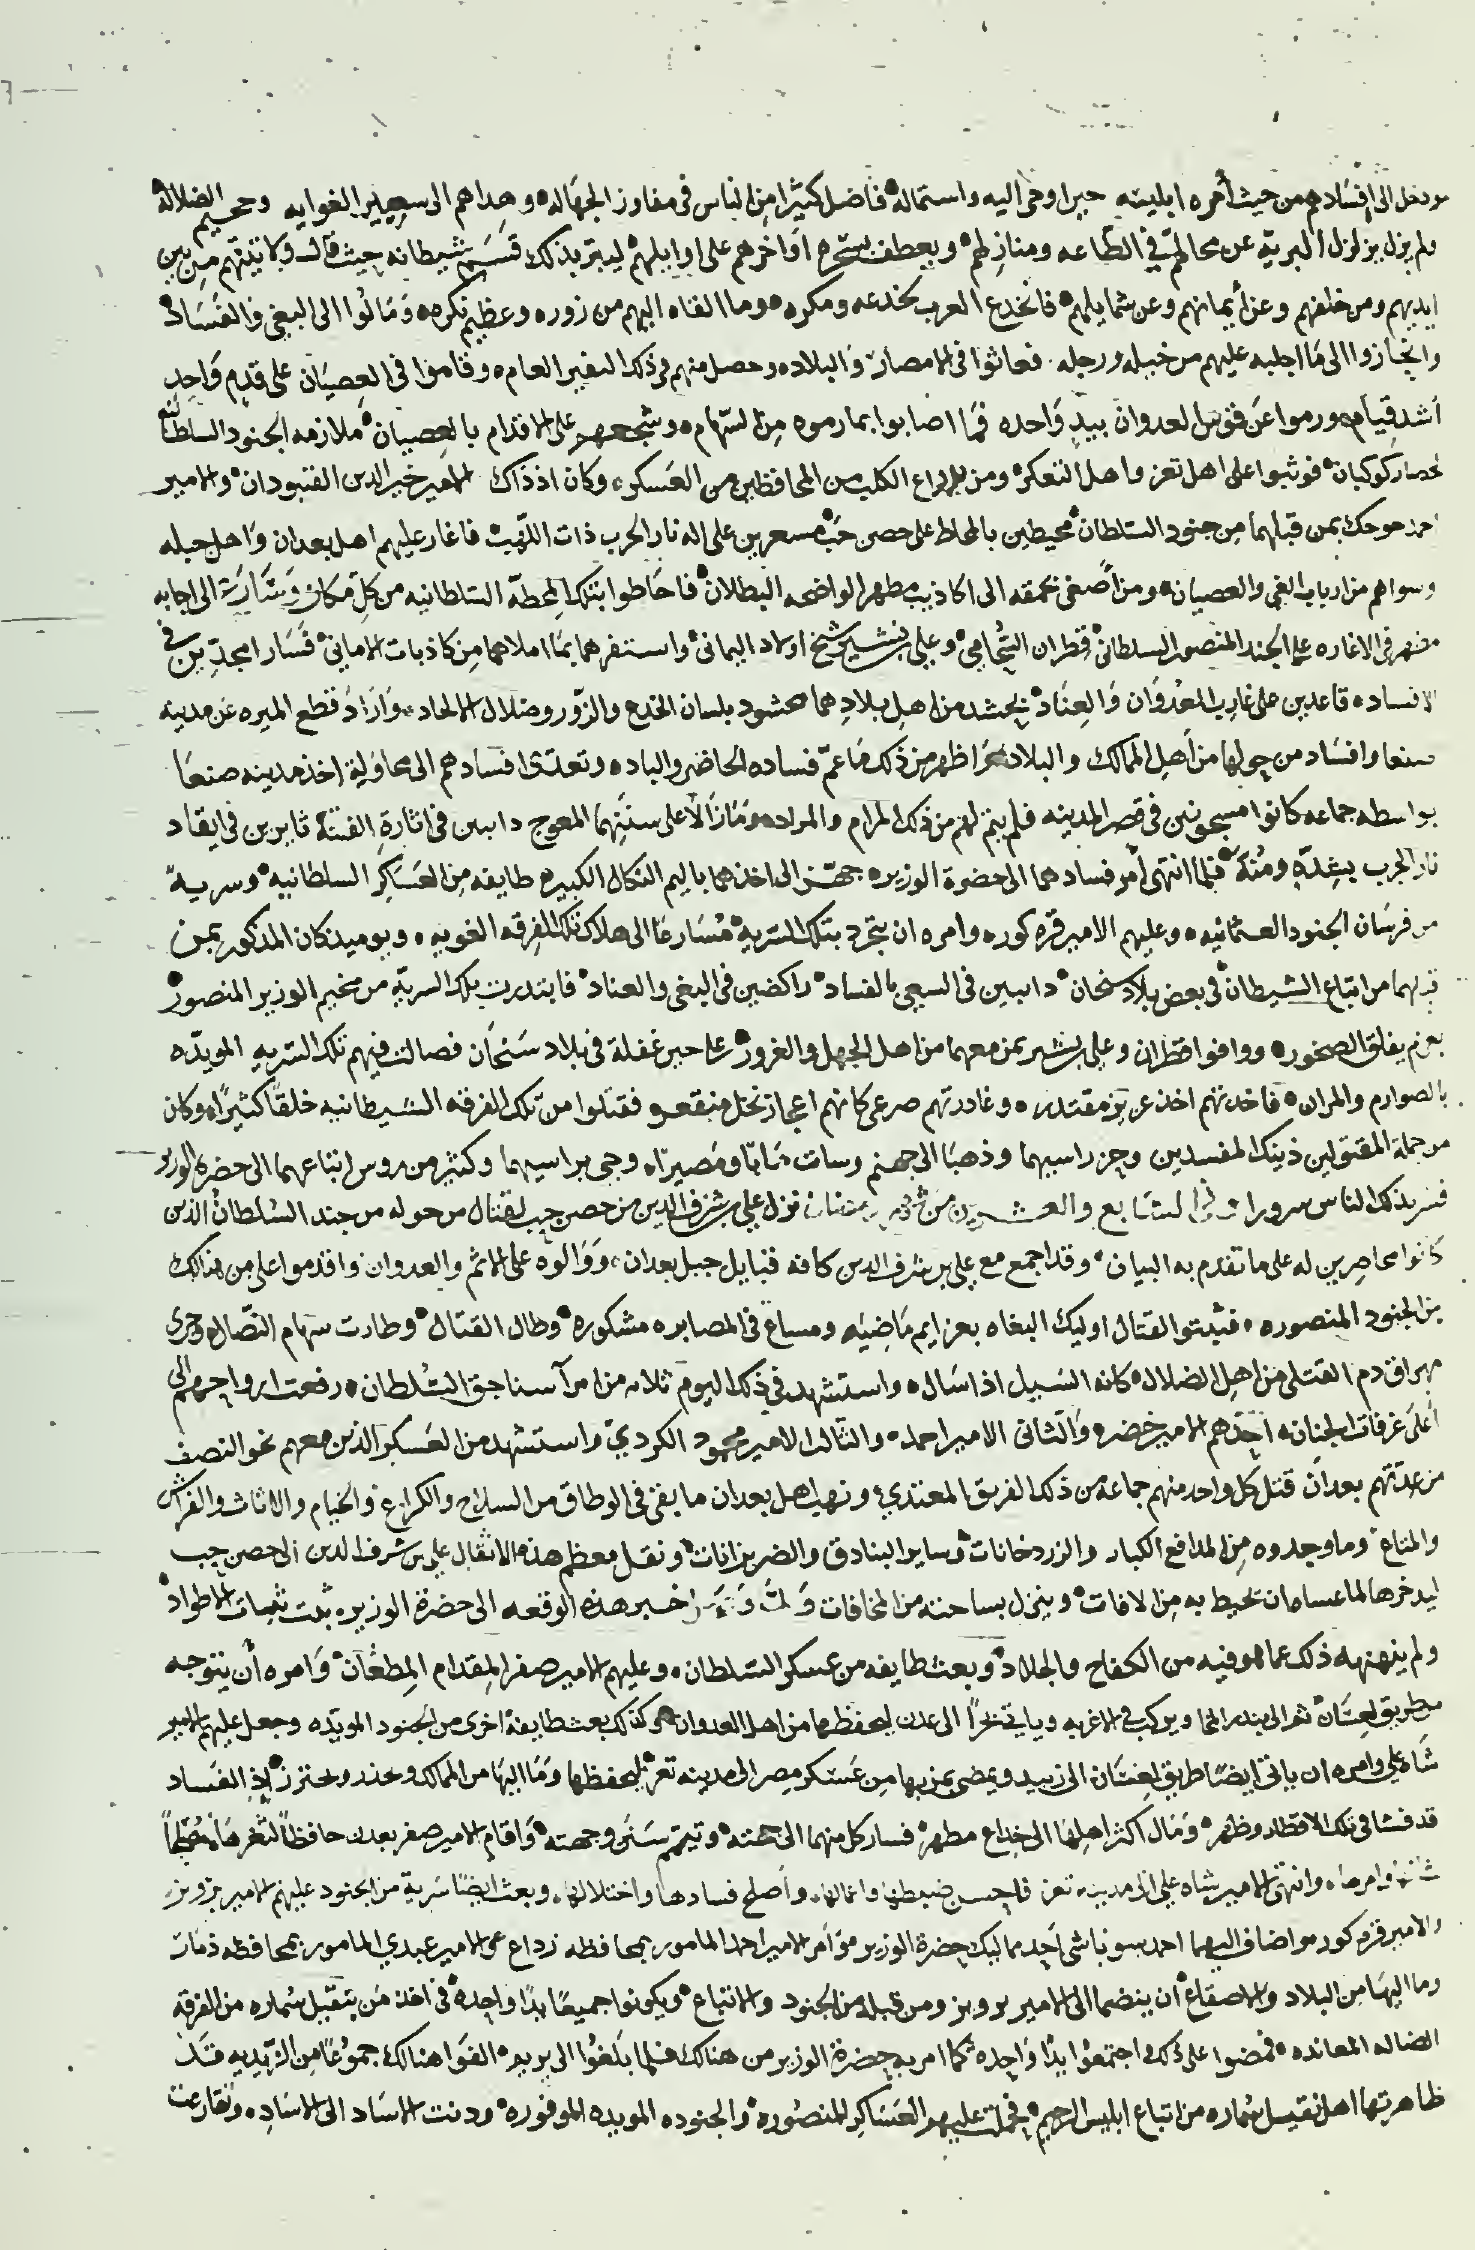 ودخل الى افسادهم من حيث أمره ابليسه حين اوحى اليه واستماله فاضل كثيرا من الناس فى مفاوز الجهاله وهداهم الى سعير الغوايه وجحيم الضلاله
ولم يزل يزلزل البرية عن محالهم في الطاعه ومنازلهم ويعطف بسحره اواخرهم على اوايلهم ليبتر بذلك قسم شيطانه حيث قال ولاتينهم من بين
ايديهم ومن خلفهم وعن أيمانهم وعن شمايلهم فانخدع العرب بخدعه ومكره وما القاه اليهم من زوره وعظيم نكره ومالوا الى البغى والفساد
وانحازوا الى ما اجلبه عليهم من خيله ورجله فعاثوا فى الامصار والبلاد وحصل منهم فى ذلك النفير العام وقاموا فى العصيان على قدم واحد
اشد قيام ورموا عن قوس العدوان بيد واحده فما اصابوا بما رموه من السهام وشجعهم على الاقدام بالعصيان ملازمه الجنود السلطانيه
لحصار كوكبان فوثبوا على اهل تعز واهل التعكر ومن المحافظين من العسكر وكان اذ ذاك الامير خير الدين القبودان والامير
احمد بمن قبلهما من جنود السلطان محيطين بالمحاط على حصن حب مسعرين على اله نار الحرب ذات اللهيب فاغار عليهم اهل بعدان واهل جبله
وسواهم من ارباب الغى والعصيان ومن أصغى بحمقه الى اكاذيب مطهر الواضحه البطلان فاحاطوا بتلك المحطة السلطانيه من كل مكان الى اجابه
مطهر فى الاغاره على الجند المنصور السلطانى قطران السحامي وعلي بن بشير شيخ اولاد اليمانى واستنفرهما بما املاهما من كاذبات الامانى فسارا مجدين فى
الافساد قاعدين على غارب العدوان والعناد بحشد من اهل بلادهما محشود بلسان الخدع والزور وضلال الالحاد وارادا قطع الميره عن مدينه
صنعا وافساد من حولها من اهل الممالك والبلاد فظهر من ذلك ما عم فساده الحاضر والباد وتعدى افسادهم الى محاولة اخذ مدينه صنعا
بواسطه جماعه كانوا مسجونين فى قصر المدينه فلم يتم لهم من ذلك المرام والمراد وما زالا على سننهما المعوج دابين فى اثارة الفتنة ثابرين فى ايقاد
نار الحرب بشدة ومنة فلما انتهى أمر فسادهما الى حضرة الوزير جهز الى اخذهما باليم النكال الكبير طايفه من العساكر السلطانيه وسرية
من فرسان الجنود العثمانيه وعليهم الامير قره كوز وامره ان يتجرد بتلك السرية مسارعا الى هلاك تلك الفرقه الغويه ويوميذ كان المذكور بمن
قبلهما من اتباع الشيطان فى بعض بلاد سنحان دابين فى السعي بالفساد راكضين فى البغى والعناد فابتدرت تلك السرية من مخيم الوزير المنصور
بعزم يفلق الصخور ووافوا قطران وعلي بن بشير بمن معهما من اهل الجهل والغرور على حين غفلة فى بلاد سنحان فصالت فيهم تلك السريه المويده
بالصوارم والمران فاخذتهم اخذ عزيز مقتدر وغادرتهم صرعى كانهم اعجاز نخل منقعر فقتلوا من تلك الفرقه الشيطانيه خلقا كثيرا وكان
من جملة المقتولين ذينك المفسدين وحز راسيهما وذهبا الى جهنم وسات مابا ومصيرا وجى براسيهما وكثير من روس اتباعهما الى حضرة الوزير
فسر بذلك الناس سرورا السابع والعشرين من شهر رمضان نزل علي بن شرف الدين من حصن حب لقتال من حوله من جند السلطان الذين
كانوا محاصرين له على ما تقدم به البيان وقد اجمع مع علي بن شرف الدين كافه قبايل جبل بعدان ووالوه على الاثم والعدوان واقدموا على من هنالك
من الجنود المنصوره فثبتوا لقتال اوليك البغاه بعزايم ماضيه ومساع فى المصابره مشكوره وطال القتال وطارت سهام النصال وجرى
مهراق دم القتلى من اهل الضلال كانه السيل اذا سال واستشهد فى ذلك اليوم ثلاثه من امرآ سناجق السلطان رفعت ارواحهم الى
أعلى غرفات الجنان احدهم الامير خضر والثانى الامير احمد والثالث الامير محمود الكردي واستشهد من العسكر الذين معهم نحو النصف
من عدتهم بعدان قتل كل واحد منهم جماعة من ذلك الفريق المعتدي ونهب اهل بعدان ما بقى فى الوطاق من السلاح والكراع والخيام والاثاث والفراش
والمتاع وما وجدوه من المدافع الكبار والزردخانات وساير البنادق والضربزانات ونقل معظم هذه الاثقال علي بن شرف الدين الى حصن حب
ليدخرها لما عساه ان تحيط به من الافات وينزل بساحته من المخافات خبر هذه الوقعه الى حضرة الوزير ثبت ثبات الاطواد
ولم ينهنهه ذلك عما هو فيه من الكفاح والجلاد وبعث طايفه من عسكر السلطان وعليهم الامير صفر المقدام المطعان وامره أن يتوجه
بطريق لعسان ثم الى بندر المخا ويركب فى الاغربه وياتى بحرا الى عدن ليحفظها من اهل العدوان وكذلك بعث طايفة اخرى من الجنود المويده وجعل عليهم الامير
شاه علي وامره ان ياتى ايضا طريق لعسان الى زبيد ويمضى بمن بها من عسكر مصر الى مدينه تعز ليحفظها وما اليها من الممالك وحذر وحترز اذ الفساد
قد فشا فى تلك الاقطار وظهر ومال اكثر اهلها الى خداع مطهر فسار كل منهما الى جهته وتيمم سنن وجهته واقام الامير صفر بعدن حافظا لثغرها مصلحا
شانها وامرها وانتهى الامير شاه علي الى مدينه تعز فاحسن ضبطها واصلح فسادها واختلالها وبعث ايضا سرية من الجنود عليهم الامير برويز
والامير قره كوز مواضاف اليهما احمد سوباشى أحد مماليك حضرة الوزير موآمر الامير احمد المامور بمحافظه رداع مع الامير عبدي المامور بمحافظه ذمار
وما اليها من البلاد والاصقاع أن ينضما الى الامير برويز ومن قبله من الجنود والاتباع ويكونوا جميعا يدا واحدة فى اخذ من بنقيل سماره من الفرقة
الضاله المعانده فمضوا على ذلك واجتمعوا يدا واحده كما امر به حضرة الوزير من هنالك فلما بلغوا الى يريم الفوا هنالك جموعا من الزيديه قد
ظاهرتها اهل نقيل سماره من اتباع ابليس الرجيم فحملت عليهم العساكر المنصوره والجنوده المويده الموفوره ودنت الاساد الى الاساد وتقارعت